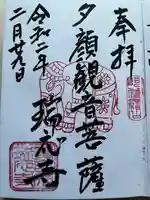 奉拝
夕顔観音菩薩
瑞光寺
令和二年
二月廿九日